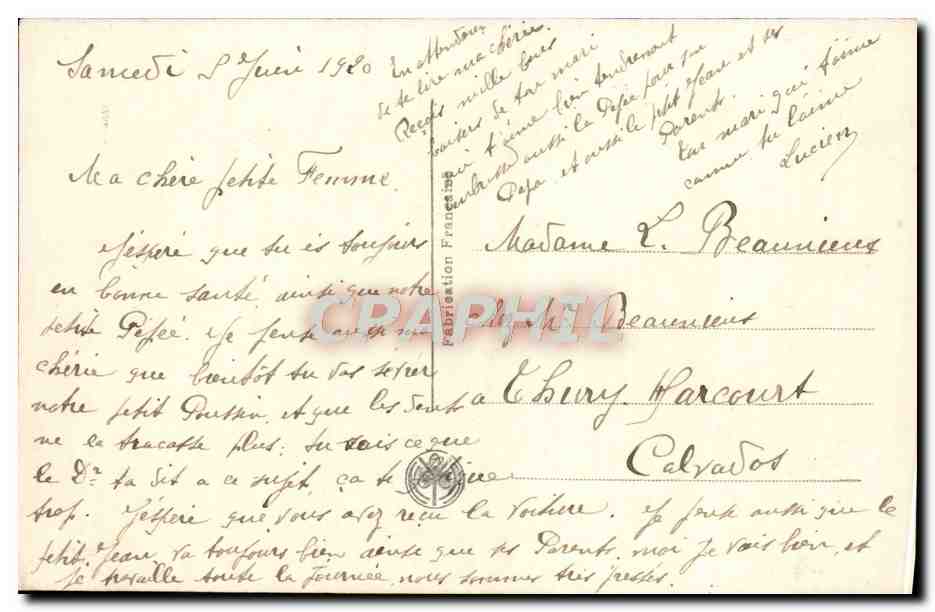 Samedi 5 Juin 1920
Ma chère petite Femme
J'espère que tu es toujours
en bonne santé, ainsi que notre
petite Pépée. Je pense aussi ma
chérie que bientôt tu vas sevrer
notre petit Poussin, et que les dents
ne la tracasse plus; tu sais ce que
le Dr ta dit a ce sujet, ça te fatigue
trop. J'espère que vous avez reçu la voiture. Je pense aussi que le
petit Jean va toujours bien ainsi que ses Parents. moi je vais bien, et
je travaille toute la journée, nous sommes très pressés.
En attendant
de te lire ma chérie.
Reçois mille bons
baisers de ton mari
qui t'aime bien tendrement
embrasse aussi la Pépée pour son
Papa et aussi le petit Jean et ses
Parents.
Ton mari qui t'aime
comme tu l'aime
Lucien
Fabrication Française
Madame L. Beaunieux
chez Mr Beaunieux
a Thury-Harcourt
Calvados
CPAPHIL